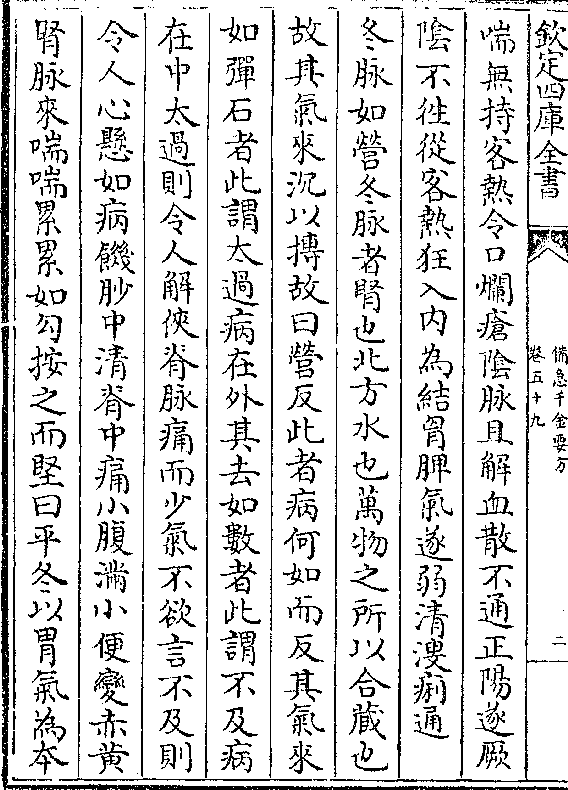 欽定四庫全書
備急千金要方
卷五十九
二
喘無持客熱令口爛瘡陰脉且解血散不通正陽遂厥
陰不往從客熱狂入内為結胷脾氣遂弱清溲痢通
冬脉如營冬脉者腎也北方水也萬物之所以合藏也
故其氣來沉以摶故曰營反此者病何如而反其氣來
如彈石者此謂太過病在外其去如數者此謂不及病
在中太過則令人解㑊脊脉痛而少氣不欲言不及則
令人心懸如病饑䏚中清脊中痛小腹滿小便變赤黃
腎脉來喘喘累累如勾按之而堅曰平冬以胃氣為本